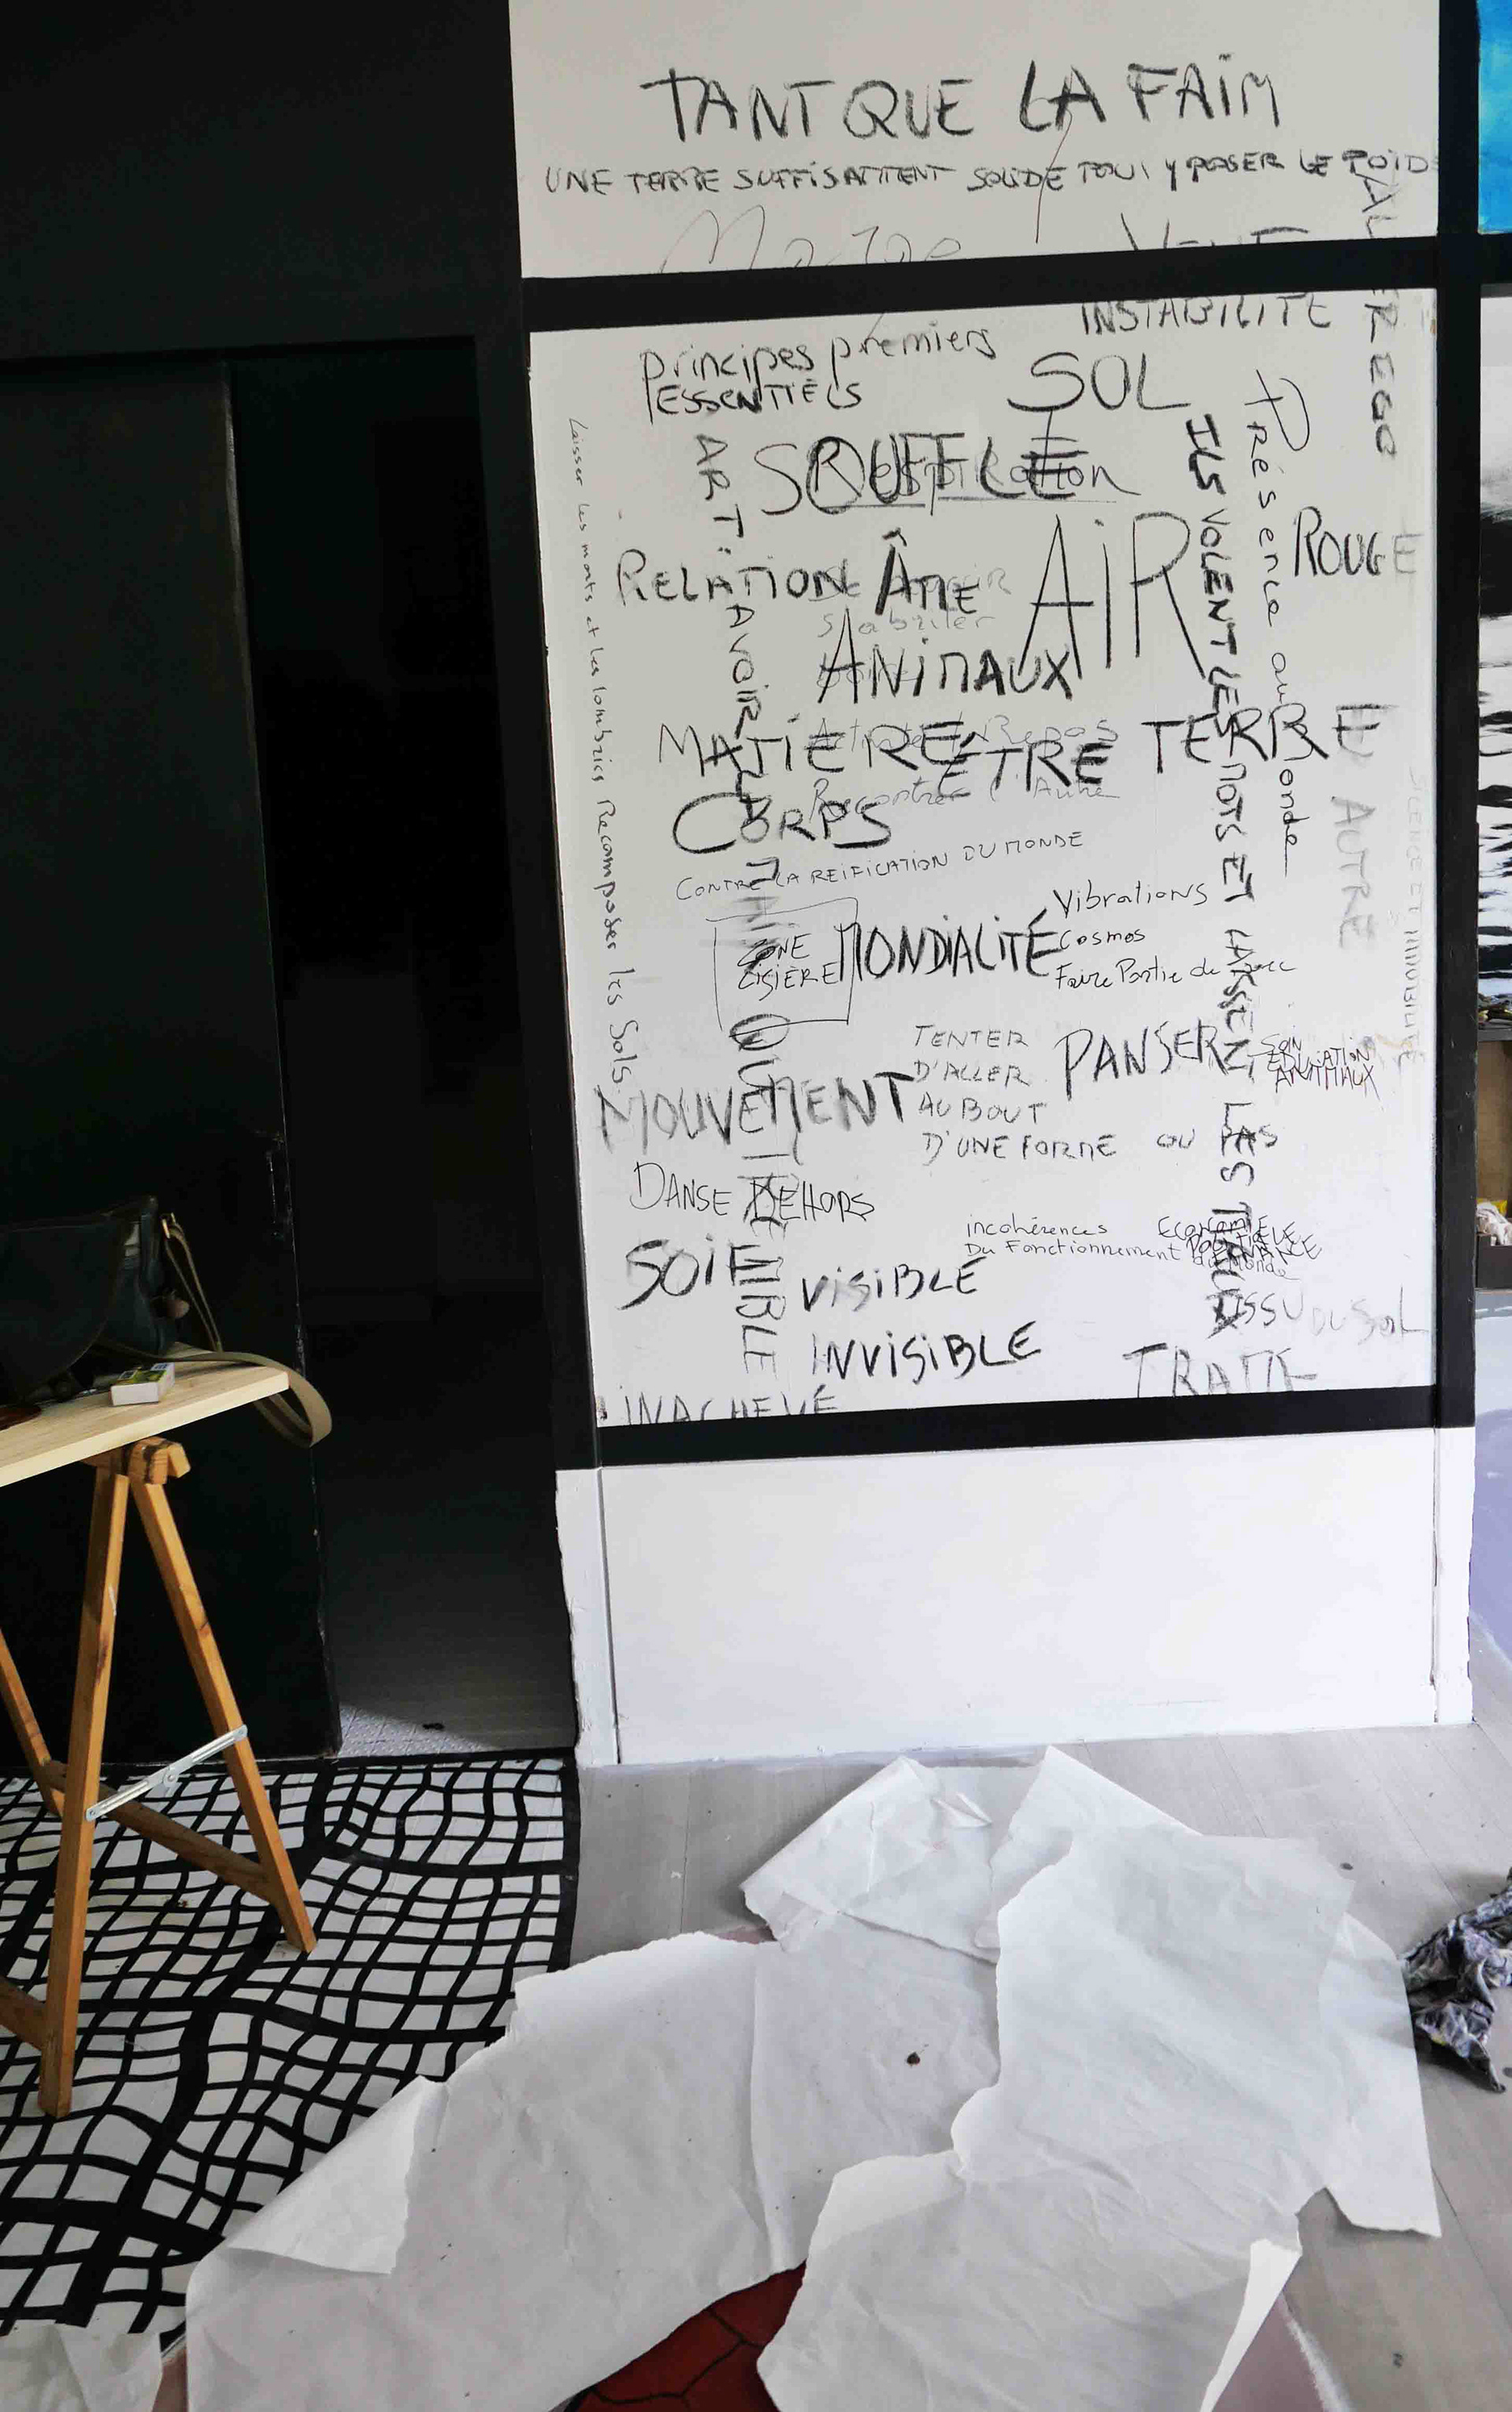 TANT QUE LA FAIM
UNE TERRE SUFFISAMMENT SOLIDE POUR Y POSER LE POIDS
ALTER EGO
INSTABILITÉ
Principes premiers
ESSENTIELS
SOL
SOUFFLE
Respiration
Présence au Monde
ROUGE
RELATION ÂME AIR
ANIMAUX
MATIERE ÊTRE TERRE
Rencontrer l'Autre
CORPS
AUTRE
CONTRE LA REIFICATION DU MONDE
ZONE
LISIÈRE
MONDIALITÉ
Vibrations
Cosmos
Faire Partie de
SILENCE ET IMMOBILITÉ
Laisser les morts et les lombrics Recomposer les Sols.
ART: AVOIR
ILS VOLENT LES MOTS ET LAISSENT LES
TENTER
D'ALLER
AU BOUT
D'UNE FORME OU PAS
PANSER
SOIN
EDUCATION
ANIMAUX
MOUVEMENT
DANSE DEHORS
incohérences
Du Fonctionnement du Monde
SOIF
VISIBLE
INVISIBLE
TISSU DU SOL
INACHEVÉ